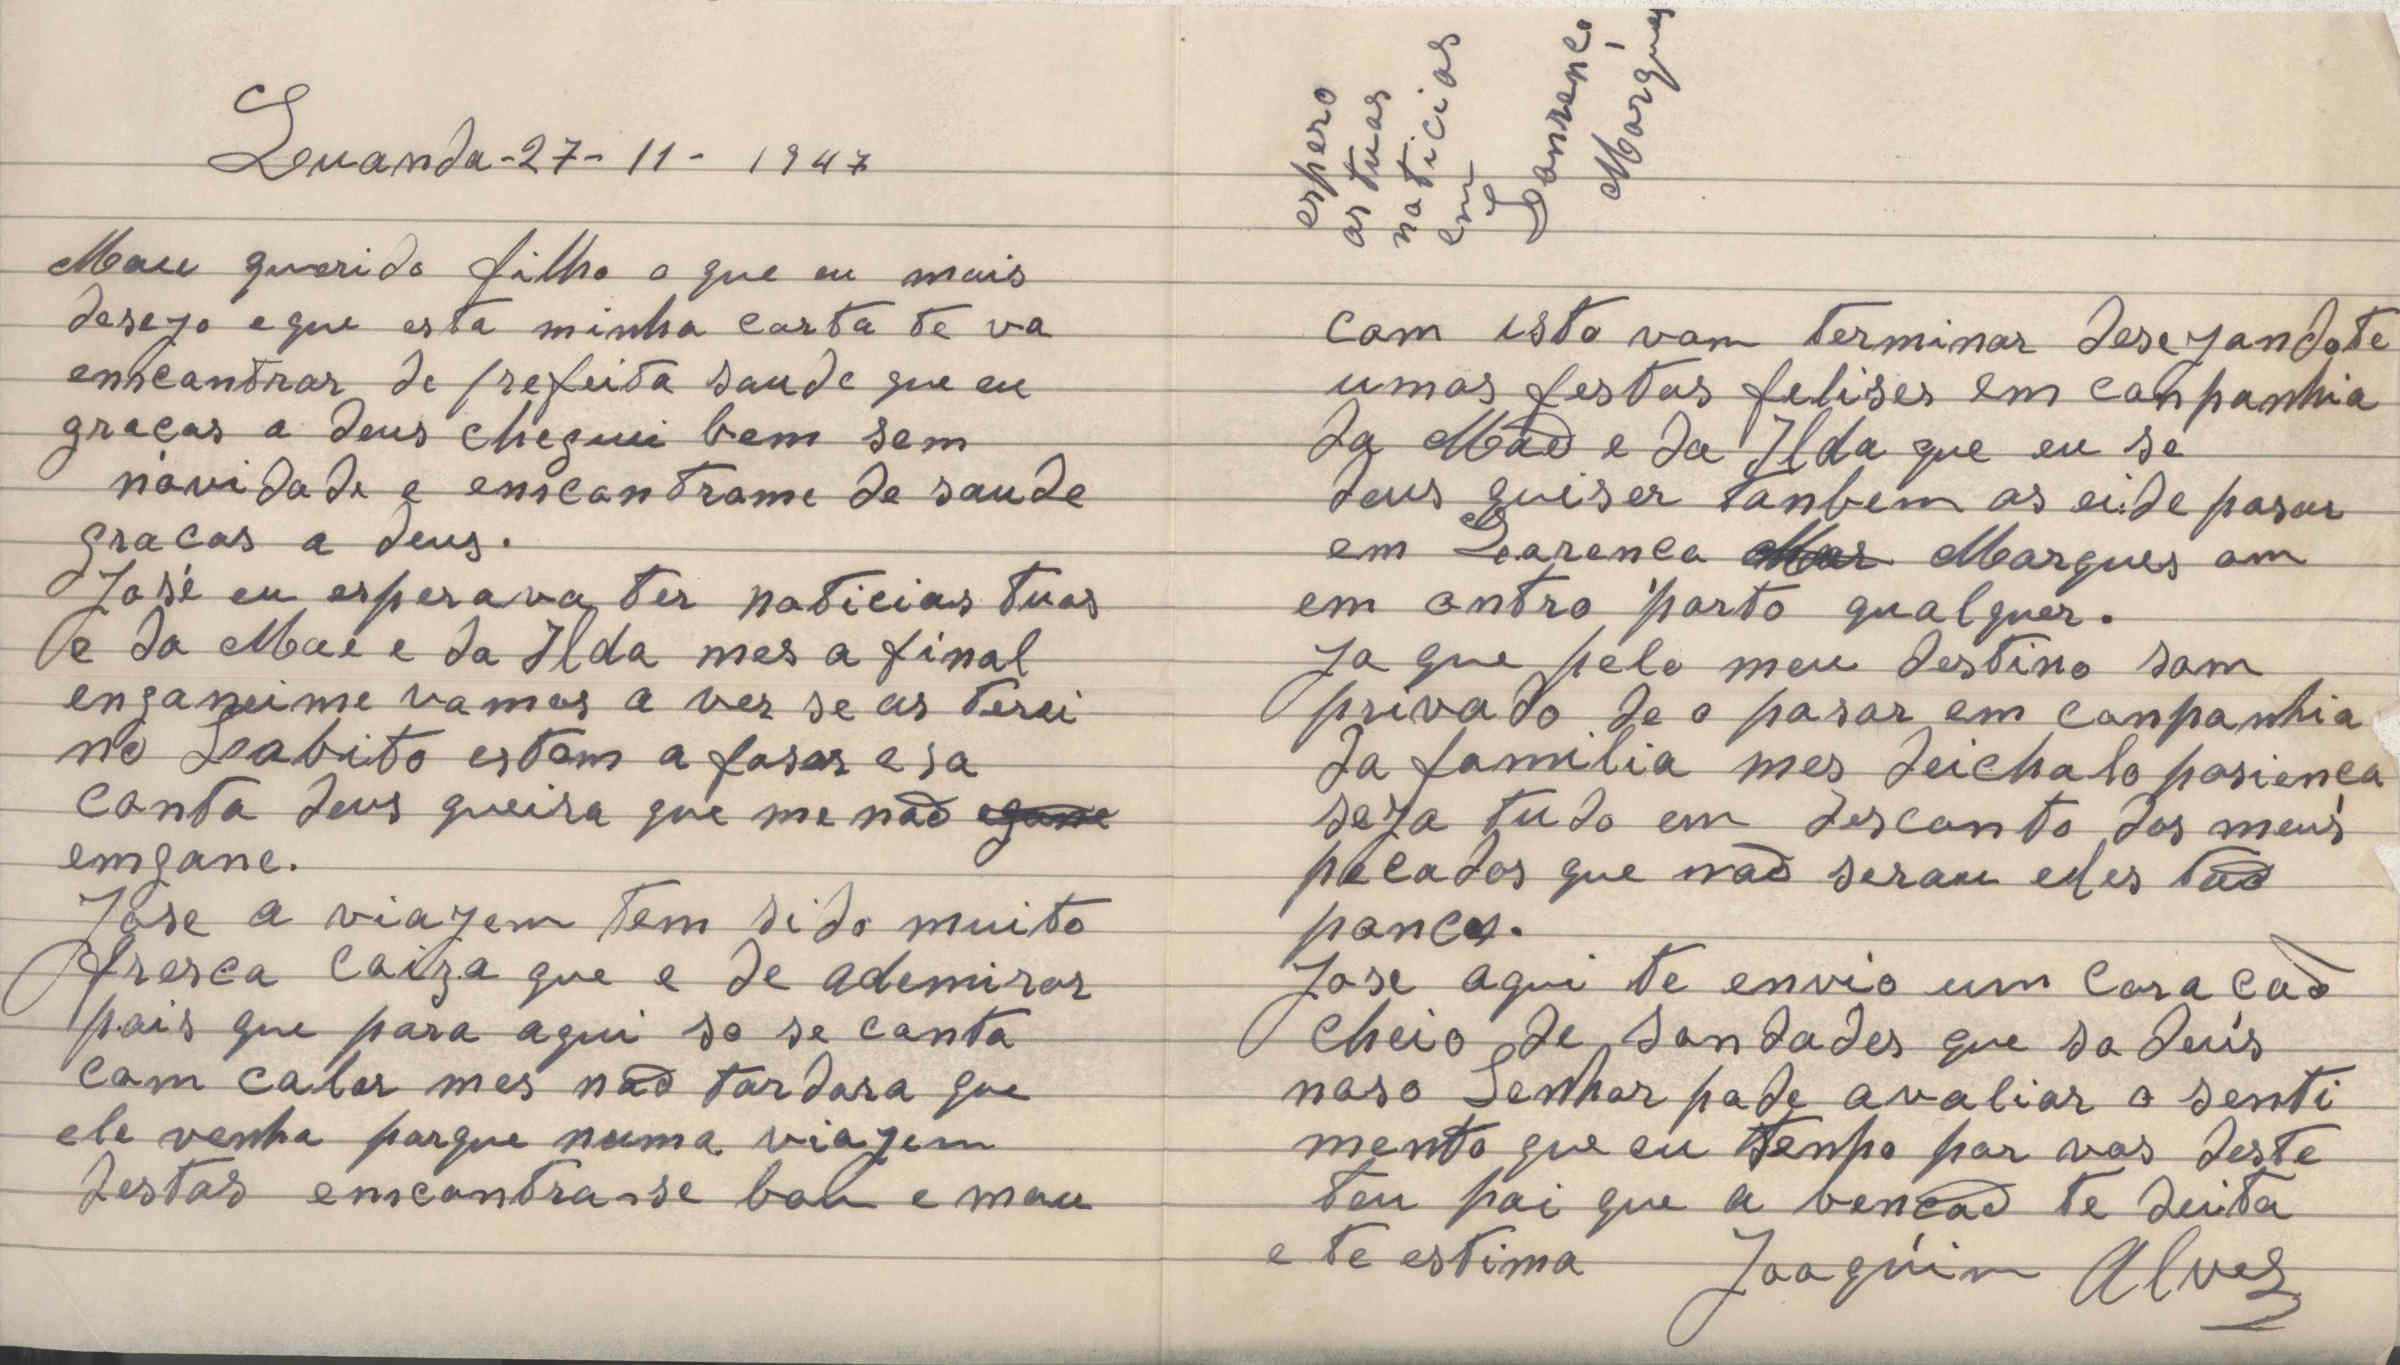 Luanda-27-11-1947
Meu querido filho o que eu mais
desejo eque esta minha carta te va
emcontrar de prefeita saude que eu
gracas a deus chegui bem sem
novidade e emcontrame de saude
gracas a deus.
José eu esperava ter noticias tuas
e da Mae e da Ilda mes a final
enganeime vamos a ver se as terei
no Lobito estom a faser esa
conta deus queira que me não egane
emgane.
Jose a viajem tem sido muito
fresca coiza que e de ademirar
pois que para aqui so se conta
com calor mes não tardara que
ele venha porque numa viajem
destas emcontra-se bou e mau
espero
as tuas
noticias
em
Lourenco
Marques
com isto vou terminar desejandote
umas festas felises em conpanhia
da Mãe e da Ilda que eu se
deus quiser tanbem as ei de pasar
em Lorenco Mar Marques ou
em outro porto qualquer.
Ja que pelo meu destino sou
privado de o pasar em conpanhia
da familia mes deichalo pasienca
seja tudo em desconto dos meus
pecados que não serau eles tão
poucos.
Jose aqui te envio um coracão
cheio de soudades que so deus
noso Senhor pode avaliar o senti
mento que eu tenho por vos deste
teu pai que a bencão te deita
e te estima Joaquim Alves